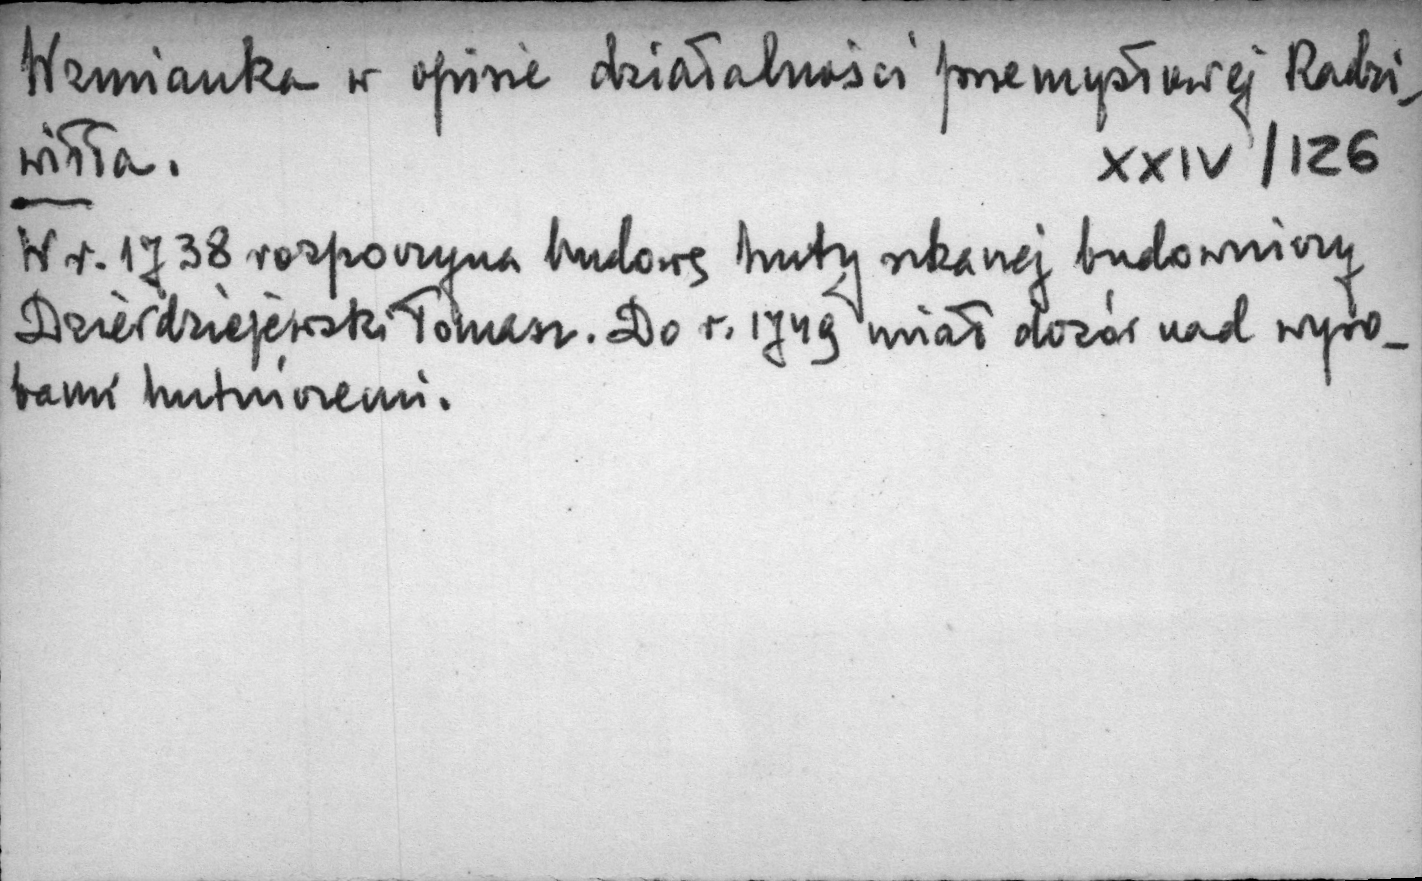 Wzmianka w opisie działalności przemysłowej Radzi-
wiłła. XXIV/126
W r. 1738 rozpoczyna budowę huty szkanej budowniczy
Dzierdziejewski Tomasz. Do r. 1749 miał dozór nad wyro-
bami hutniczemi.